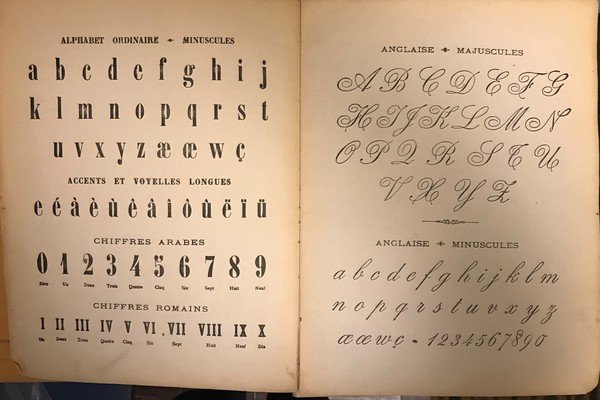 ALPHABET ORDINAIRE ✦ MINUSCULES
a b c d e f g h i j
k l m n o p q r s t
u v x y z æ œ w ç
ACCENTS ET VOYELLES LONGUES
e é à è ù ê â î ô û ë ï ü
CHIFFRES ARABES
0 1 2 3 4 5 6 7 8 9
Zéro Un Deux Trois Quatre Cinq Six Sept Huit Neuf
CHIFFRES ROMAINS
I II III IV V VI VII VIII IX X
Un Deux Trois Quatre Cinq Six Sept Huit Neuf Dix
ANGLAISE ✦ MAJUSCULES
A B C D E F G
H I J K L M N
O P Q R S T U
V X Y Z
ANGLAISE ✦ MINUSCULES
a b c d e f g h i j k l m
n o p q r s t u v x y z
æ œ w ç - 1 2 3 4 5 6 7 8 9 0